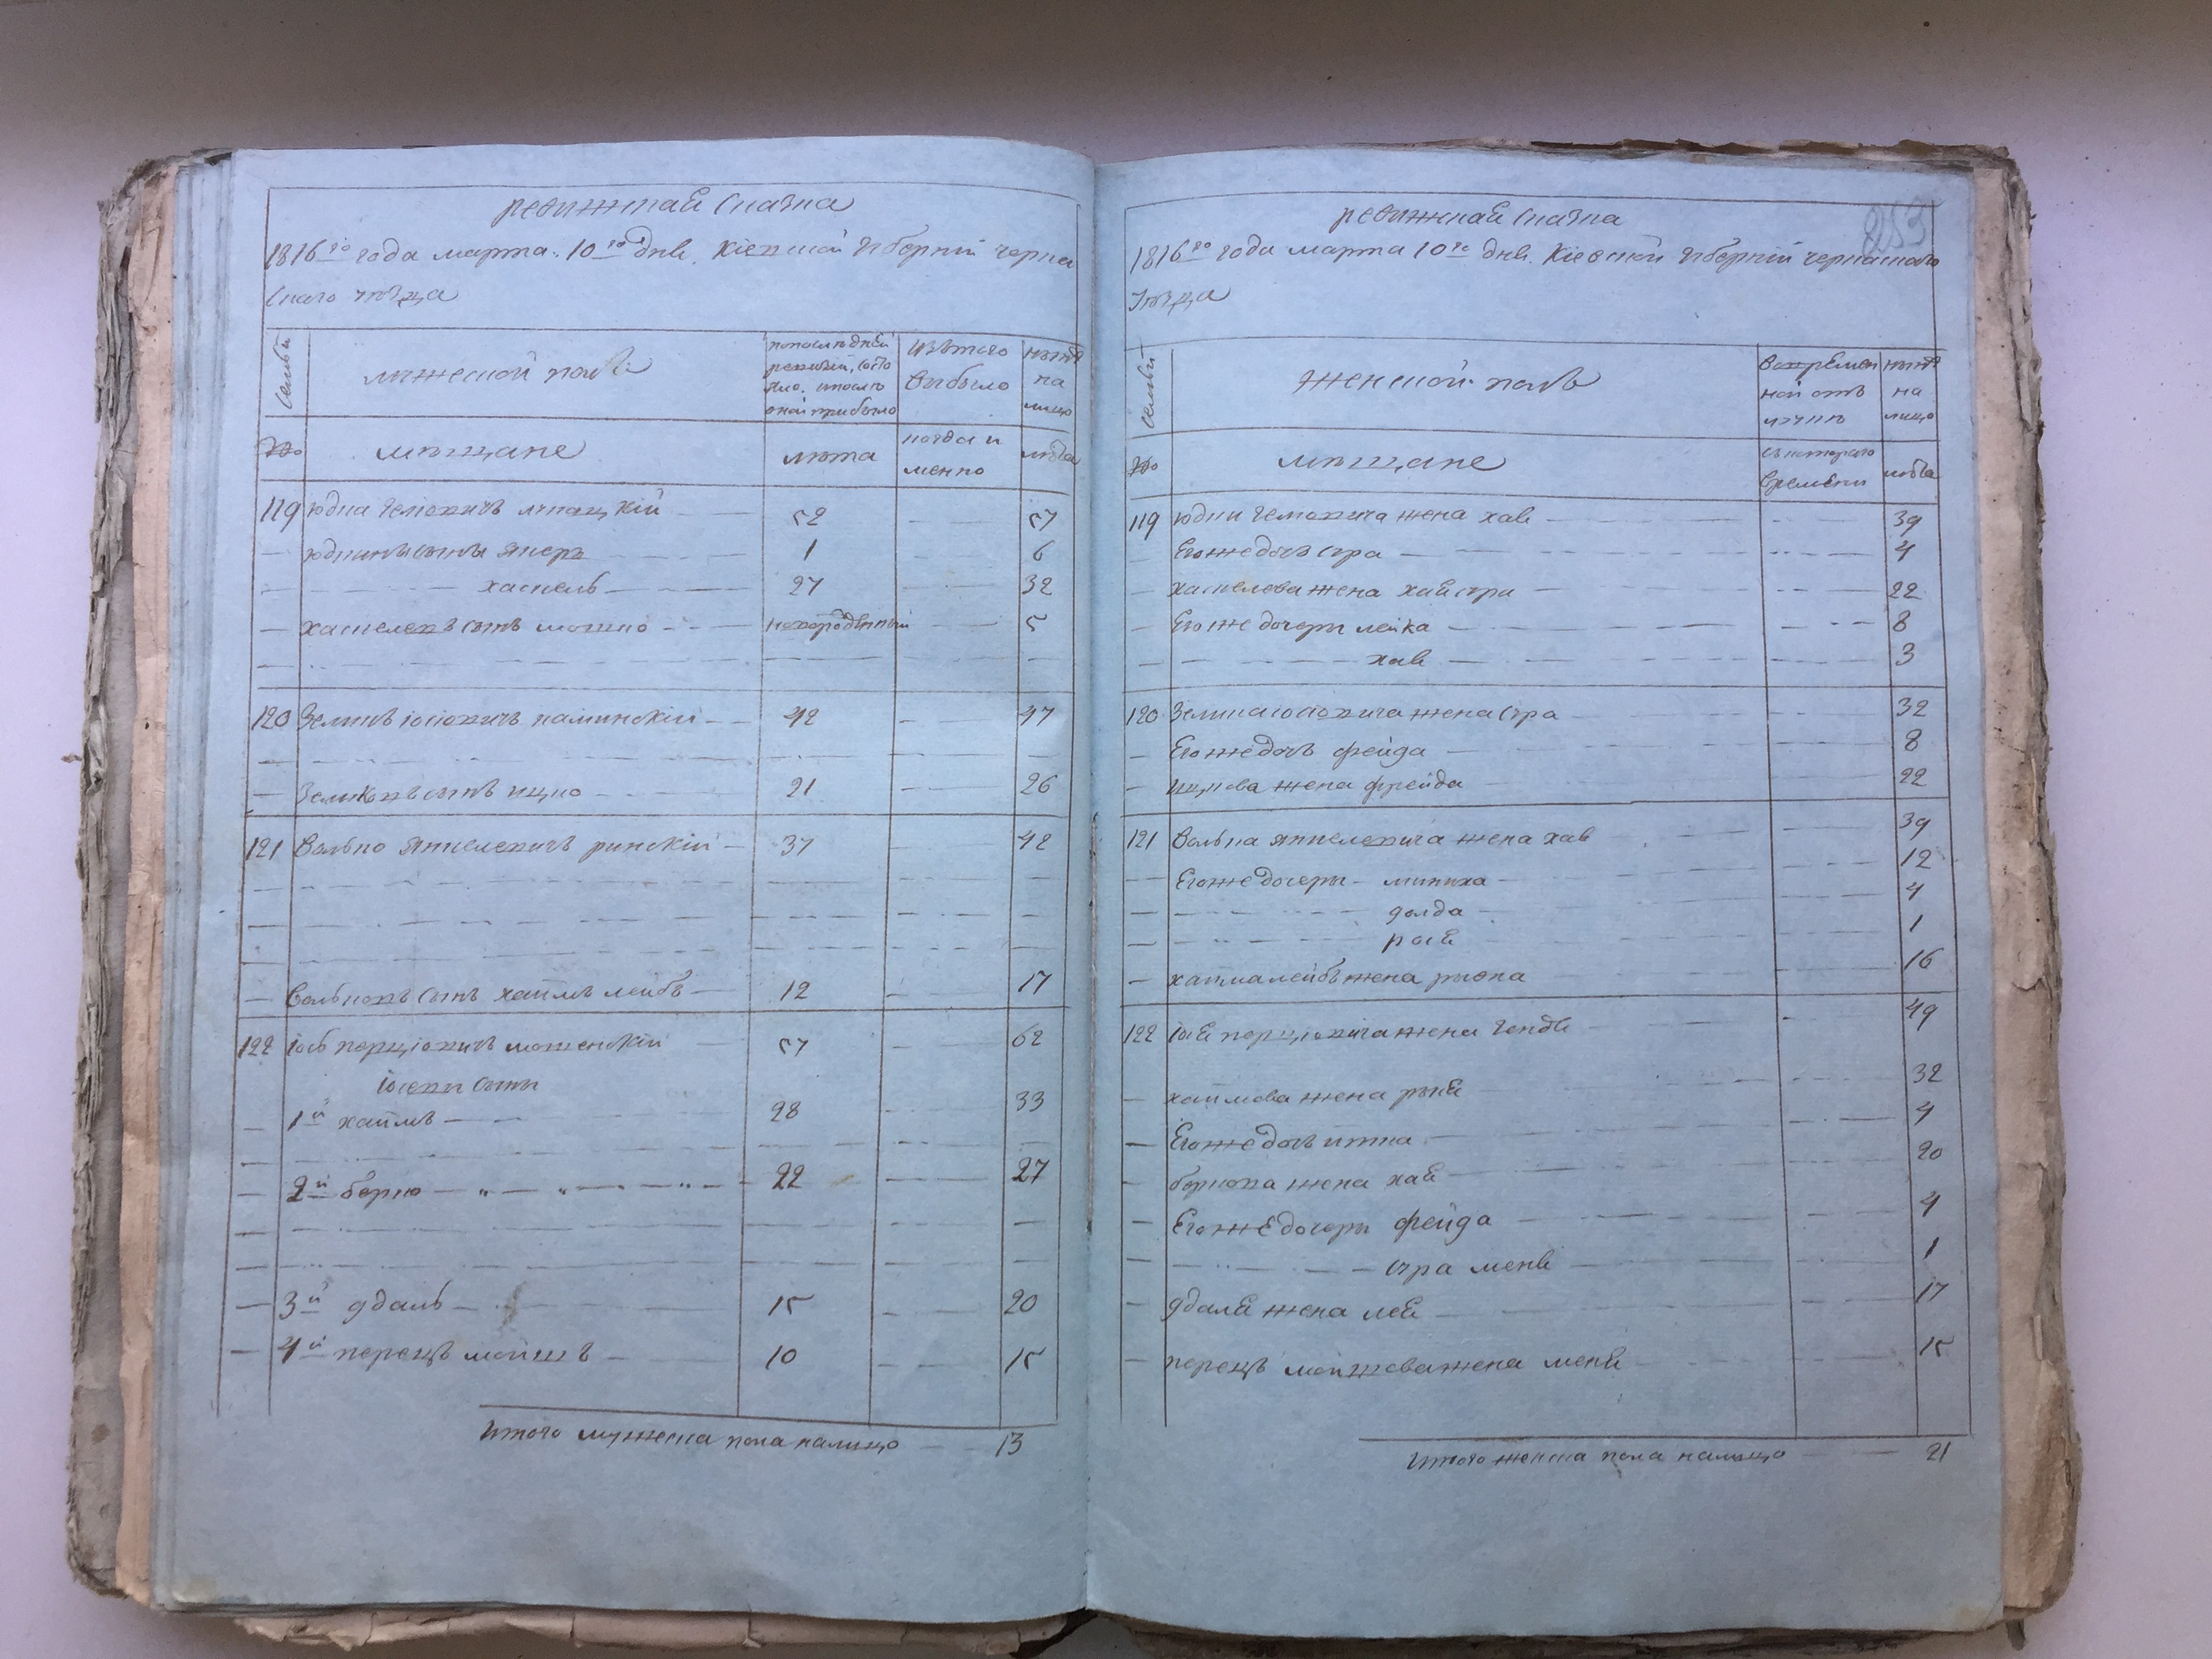 ревижская сказка
1816го года марта 10го дня. Кіевской губерніи черка
скаго уѣзда
семьи
мужеской полъ
попослѣдней
ревизіи, состо
яло. ипослѣ
оной прибыло
изътого
выбыло
нынѣ
на
лицо
№
мѣщане
лѣта
когда и
менно
лѣта
119 юдка
52 57
юдкинъ сынъ янкеръ 1 6
хаскель 27 32
хаскелевъ сынъ мошко новорожденный 5
120 Зеликъ іосіовичъ каминскій 42 47
Зеликовъ сынъ ицко 21 26
121 Волько янкелевичъ ринскій 37 42
Вольковъ сынъ хаимъ лейбъ 12 17
122 іось перціовичъ мошенскій 57 62
іосевы сыны
1й хаимъ 28 33
2й берко 22 27
3й удаль 15 20
4й перецъ мошъ 10 15
Итого мужеска пола налицо 13
253
ревижская сказка
1816го года марта 10го дня. Кіевской губерніи черкаскаго
уѣзда
семьи
женской полъ
вовремен
ной отъ
лучкѣ
нынѣ
на
лицо
№
мѣщане
съкотораго
времени
лѣта
119 юдки жена хая 39
Егоже дочь сура 4
хаскелева жена хаясура 22
Егоже дочери лейка 8
хая 3
120 Зелика іосіовича жена сура 32
Егоже дочь фейга 8
ицкова жена фрейда 22
121 Волька янкелевича жена хая 39
Егоже дочери миниха 12
голда 4
рося 1
хаима лейбъ жена рывка 16
122 іося перціовича жена гендя 49
хаимова жена рыся 32
Егоже дочь итка 4
беркова жена хая 20
Егоже дочери фейга 4
сура меня 1
удаля жена лея 17
перецъ мошкова жена меня 15
Итого женска пола налицо 21